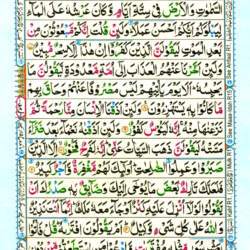 السَّمٰوٰتِ وَالْاَرْضَ فِيْ سِتَّةِ اَيَّامٍ وَّكَانَ عَرْشُهٗ عَلَى الْمَآءِ
لِيَبْلُوَكُمْ اَيُّكُمْ اَحْسَنُ عَمَلًا وَلَئِنْ قُلْتَ اِنَّكُمْ مَّبْعُوْثُوْنَ مِنْۢ
بَعْدِ الْمَوْتِ لَيَقُوْلَنَّ الَّذِيْنَ كَفَرُوْٓا اِنْ هٰذَآ اِلَّا سِحْرٌ مُّبِيْنٌ
وَلَئِنْ اَخَّرْنَا عَنْهُمُ الْعَذَابَ اِلٰٓى اُمَّةٍ مَّعْدُوْدَةٍ لَّيَقُوْلُنَّ مَا
يَحْبِسُهٗ اَلَا يَوْمَ يَاْتِيْهِمْ لَيْسَ مَصْرُوْفًا عَنْهُمْ وَحَاقَ بِهِمْ
مَّا كَانُوْا بِهٖ يَسْتَهْزِءُوْنَ وَلَئِنْ اَذَقْنَا الْاِنْسَانَ مِنَّا رَحْمَةً ثُمَّ
نَزَعْنٰهَا مِنْهُ اِنَّهٗ لَيَـُٔوْسٌ كَفُوْرٌ وَلَئِنْ اَذَقْنٰهُ نَعْمَآءَ بَعْدَ ضَرَّآءَ
مَسَّتْهُ لَيَقُوْلَنَّ ذَهَبَ السَّيِّاٰتُ عَنِّيْ اِنَّهٗ لَفَرِحٌ فَخُوْرٌ اِلَّا الَّذِيْنَ
صَبَرُوْا وَعَمِلُوا الصّٰلِحٰتِ اُولٰٓئِكَ لَهُمْ مَّغْفِرَةٌ وَّاَجْرٌ كَبِيْرٌ
فَلَعَلَّكَ تَارِكٌۢ بَعْضَ مَا يُوْحٰٓى اِلَيْكَ وَضَآئِقٌۢ بِهٖ صَدْرُكَ اَنْ
يَّقُوْلُوْا لَوْلَآ اُنْزِلَ عَلَيْهِ كَنْزٌ اَوْ جَآءَ مَعَهٗ مَلَكٌ اِنَّمَآ اَنْتَ نَذِيْرٌ
وَاللّٰهُ عَلٰى كُلِّ شَيْءٍ وَّكِيْلٌ اَمْ يَقُوْلُوْنَ افْتَرٰىهُ قُلْ فَاْتُوْا